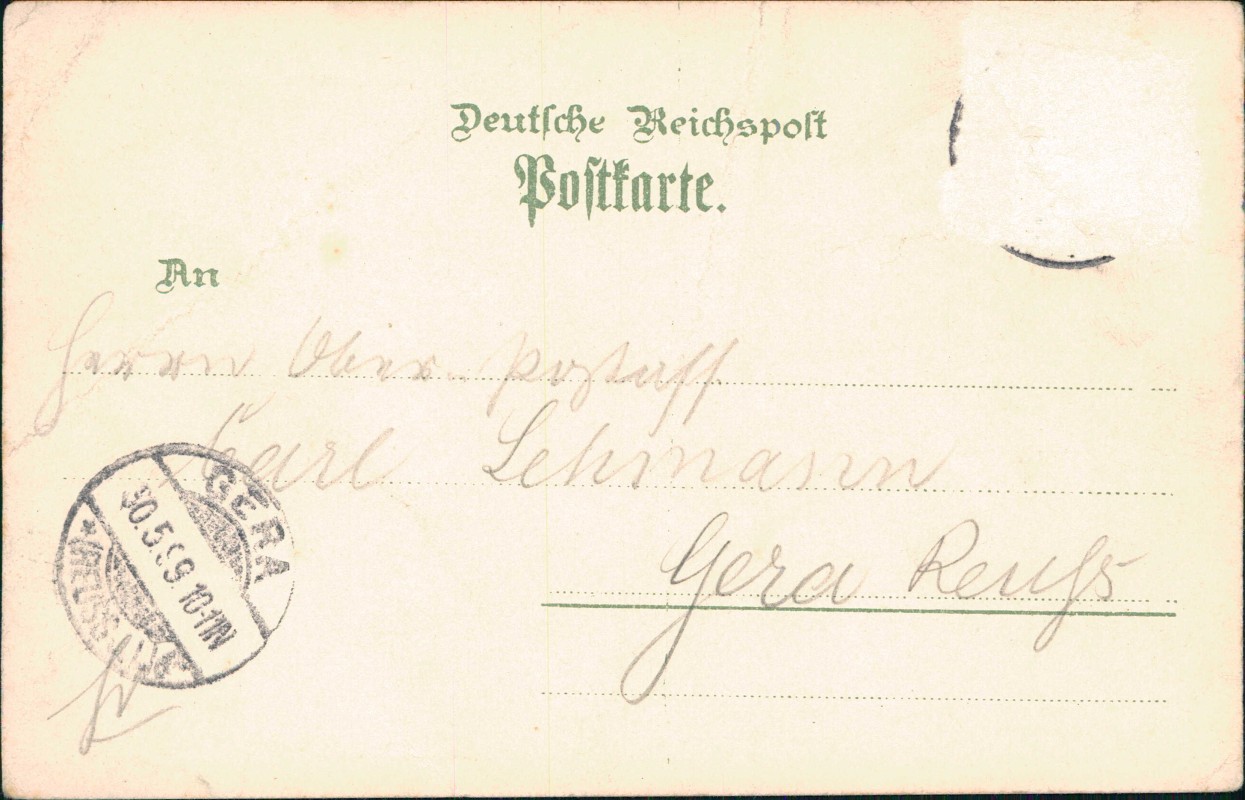 Deutsche Reichspost
Postkarte.
An
Herrn Ober-Postass
Carl Lehmann
Gera Reuss
GERA
30.5.99.10-11N
*(REUSS